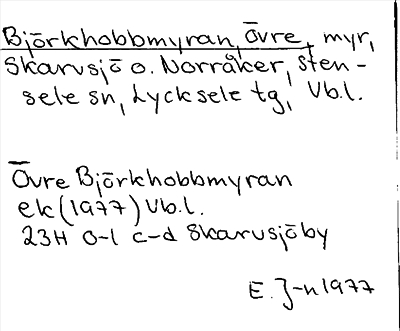 Björkhobbmyran, Övre, myr,
Skarvsjö o. Norråker, Sten-
sele sn, Lycksele tg, Vb.l.
Övre Björkhobbmyran
ek (1977) Vb.l.
23H 0-1 c-d Skarvsjöby
E. J-n 1977